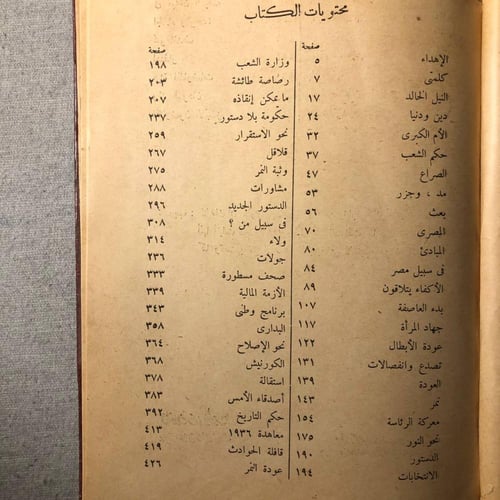 محتويات الكتاب
صفحة
الإهداء ٥
كلمتى ٧
النيل الخالد ١٧
دين ودنيا ٢٤
الأم الكبرى ٣٢
حكم الشعب ٣٧
الصراع ٤٧
مد ، وجزر ٥٣
بعث ٥٦
المصرى ٧٠
المبادئ ٨٠
فى سبيل مصر ٨٤
الأكفاء يتلاقون ٨٩
بدء العاصفة ١٠٧
جهاد المرأة ١١٧
عودة الأبطال ١٢٢
تصدع وانفصالات ١٣١
العودة ١٣٩
نمر ١٤٣
معركة الرئاسة ١٥٤
نحو النور ١٧٥
الدستور ١٩٠
الانتخابات ١٩٤
صفحة
وزارة الشعب ١٩٨
رصاصة طائشة ٢٠٣
ما يمكن إنقاذه ٢٠٧
حكومة بلا دستور ٢٣٧
نحو الاستقرار ٢٥٩
قلاقل ٢٦٧
وثبة النمر ٢٧٥
مشاورات ٢٨٨
الدستور الجديد ٢٩٦
فى سبيل من ؟ ٣٠٨
ولاء ٣١٤
جولات ٢٣٦
صحف مسطورة ٣٣٣
الأزمة المالية ٣٣٩
برنامج وطنى ٣٤٣
البدارى ٣٥٨
نحو الإصلاح ٣٦٤
الكورنيش ٣٦٨
استقالة ٣٧٨
أصدقاء الأمس ٣٨٣
حكم التاريخ ٣٩٢
معاهدة ١٩٣٦ ٤١٣
قافلة الحوادث ٤١٩
عودة النمر ٤٢٦